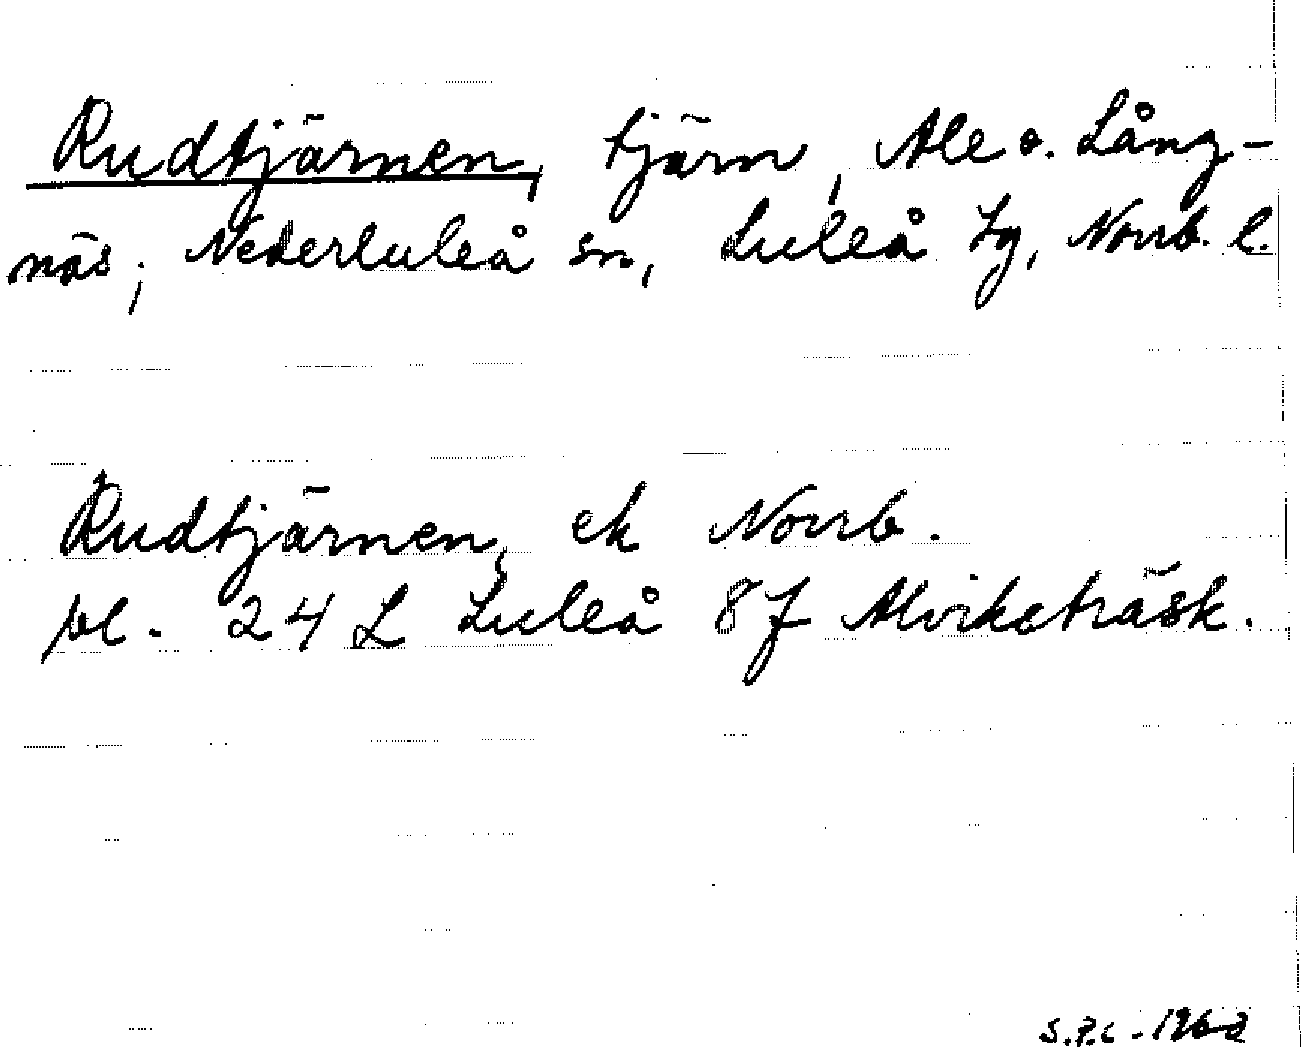 Rudtjärnen, tjärn, Ale o. Lång-
näs, Nederluleå sn, Luleå tg, Norrb. l.
Rudtjärnen, ek Norrb.
bl. 24 L Luleå 8J Alviketräsk.
S.P.C. 1962